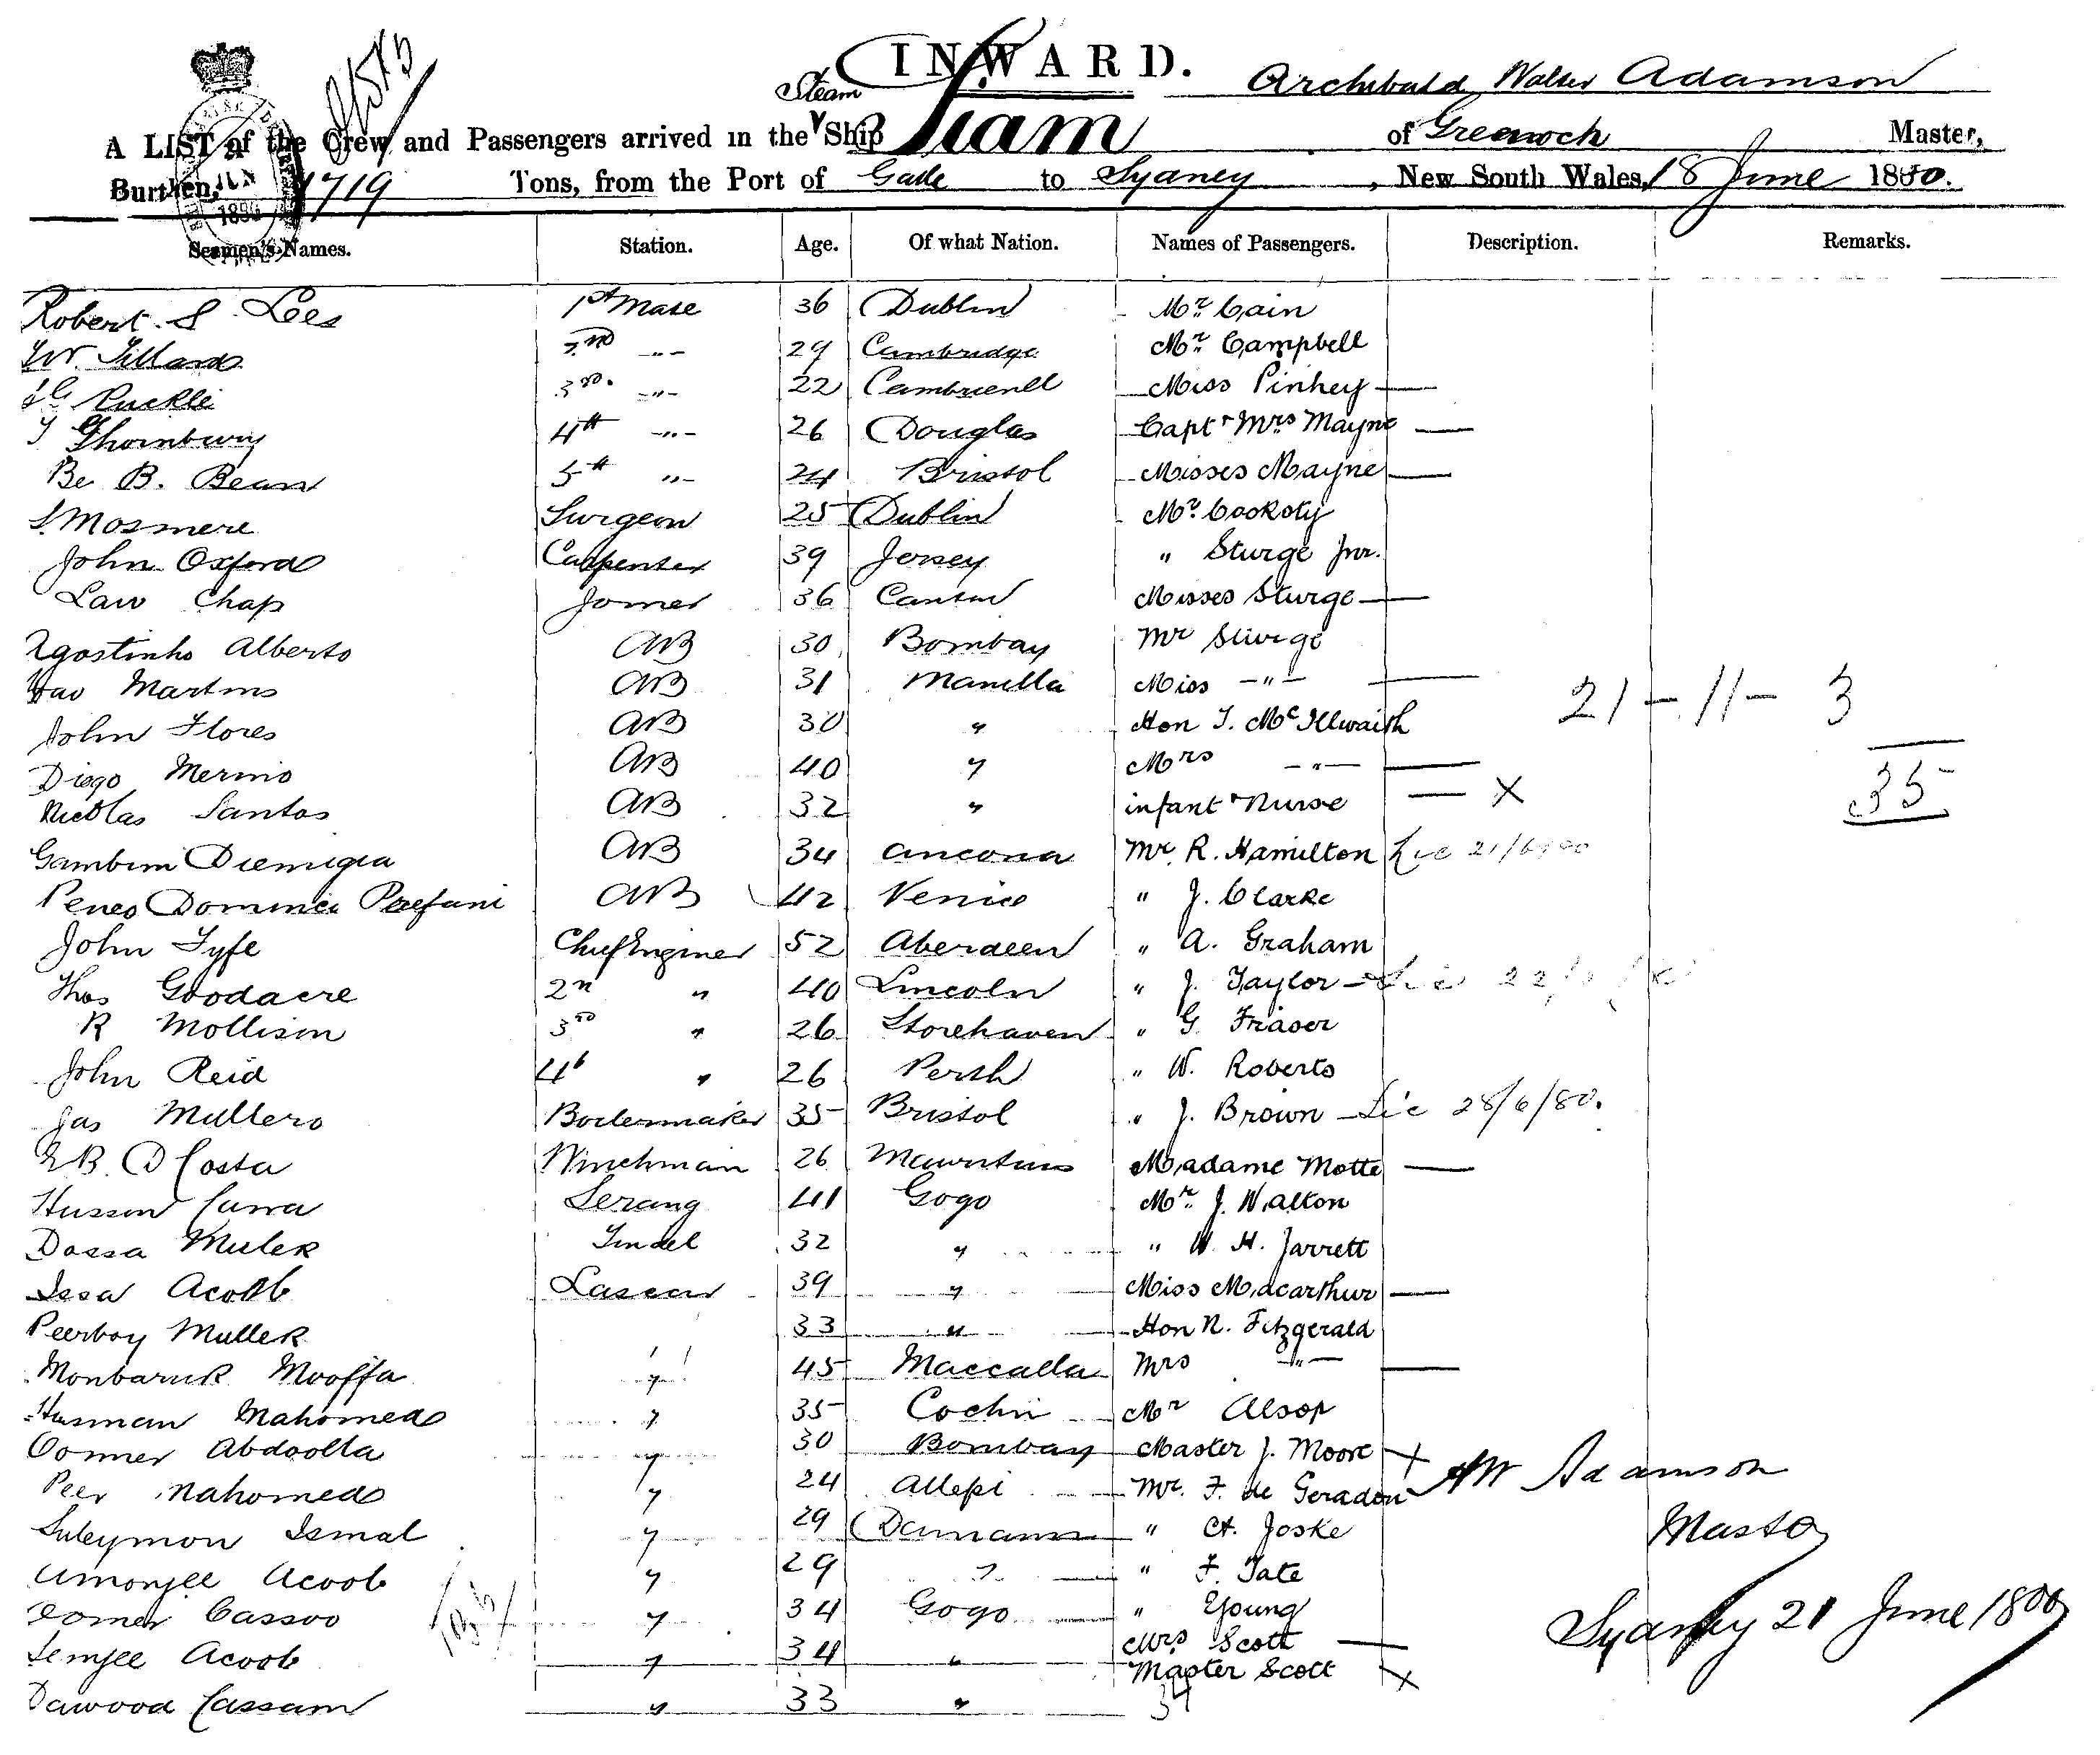 INWARD.
Archibald Walter Adamson
A LIST of the Crew and Passengers arrived in the Steam Ship Siam of Greenock Master,
Burthen, 1719 Tons, from the Port of Galle to Sydney, New South Wales, 18 June 1880.
Seamen's Names. Station. Age. Of what Nation. Names of Passengers. Description. Remarks.
Robert S Lees 1st Mate 36 Dublin Mr. Cain
W. 2nd -"- 29 Cambridge Mr. Campbell
3rd. -"- 22 Miss Pinhey —
Thornbury 4th -"- 26 Douglas Capt & Mrs Mayne —
B. Bean 5th "- 24 Bristol Misses Mayne —
Mosmere Surgeon 25 Dublin Mr.
John Oxford Carpenter 39 Jersey " Sturge Jnr.
Law Chap Joiner 36 Canton Misses Sturge —
Agostinho Alberto AB 30 Bombay Mr Sturge
Martins AB 31 Manilla Miss -"- —
John Flores AB 30 " Hon T. McIllwaith 21 - 11 - 3
Diego Merino AB 40 " Mrs -"- —
Nicolas Santos AB 32 " infant & Nurse — X 35
Gambim AB 34 Ancona Mr. R. Hamilton
AB 42 Venice " J. Clarke
John Fyfe Chief Engineer 52 Aberdeen " A. Graham
Thos Goodacre 2n " 40 Lincoln " J. Taylor
R Mollison 3rd " 26 Stonehaven " G. Fraser
John Reid 4th " 26 Perth " W. Roberts
Jas Mullers Boilermaker 35 Bristol " J. Brown — 28/6/80.
D Costa Winchman 26 Mauritius Madame Motte —
Serang 41 Gogo Mr. J. Walton
Dossa Mulek Tindel 32 " " W. H. Jarrett
Issa Acoob Lascar 39 " Miss Macarthur —
Peerboy Mullek 33 " Hon N. Fitzgerald
Monbaruk Mooffa " 45 Maccalla Mrs -"- —
Husman Mahomed " 35 Cochin Mr Alsop
Oomer Abdoolla " 30 Bombay Master J. Moore X
Peer Mahomed " 24 Allepi Mr. F. de Geradon AW Adamson
Suleymon Ismal " 29 Damaun " A. Joske Master
Amonjee Acoob " 29 " " F. Tate
Oomer Cassoo " 34 Gogo " Young Sydney 21 June 1880
Acoob " 34 " Mrs Scott —
Master Scott X
Dawood Cassam " 33 " 34